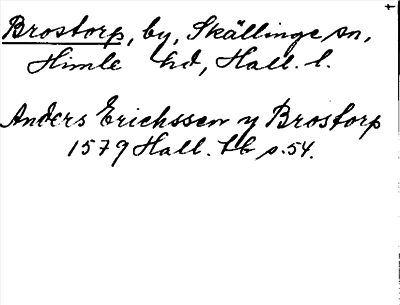 Brostorp, by, Skällinge sn,
Himle hd, Hall. l.
Anders Erichssen y Brostorp
1579 Hall. lb s. 54.